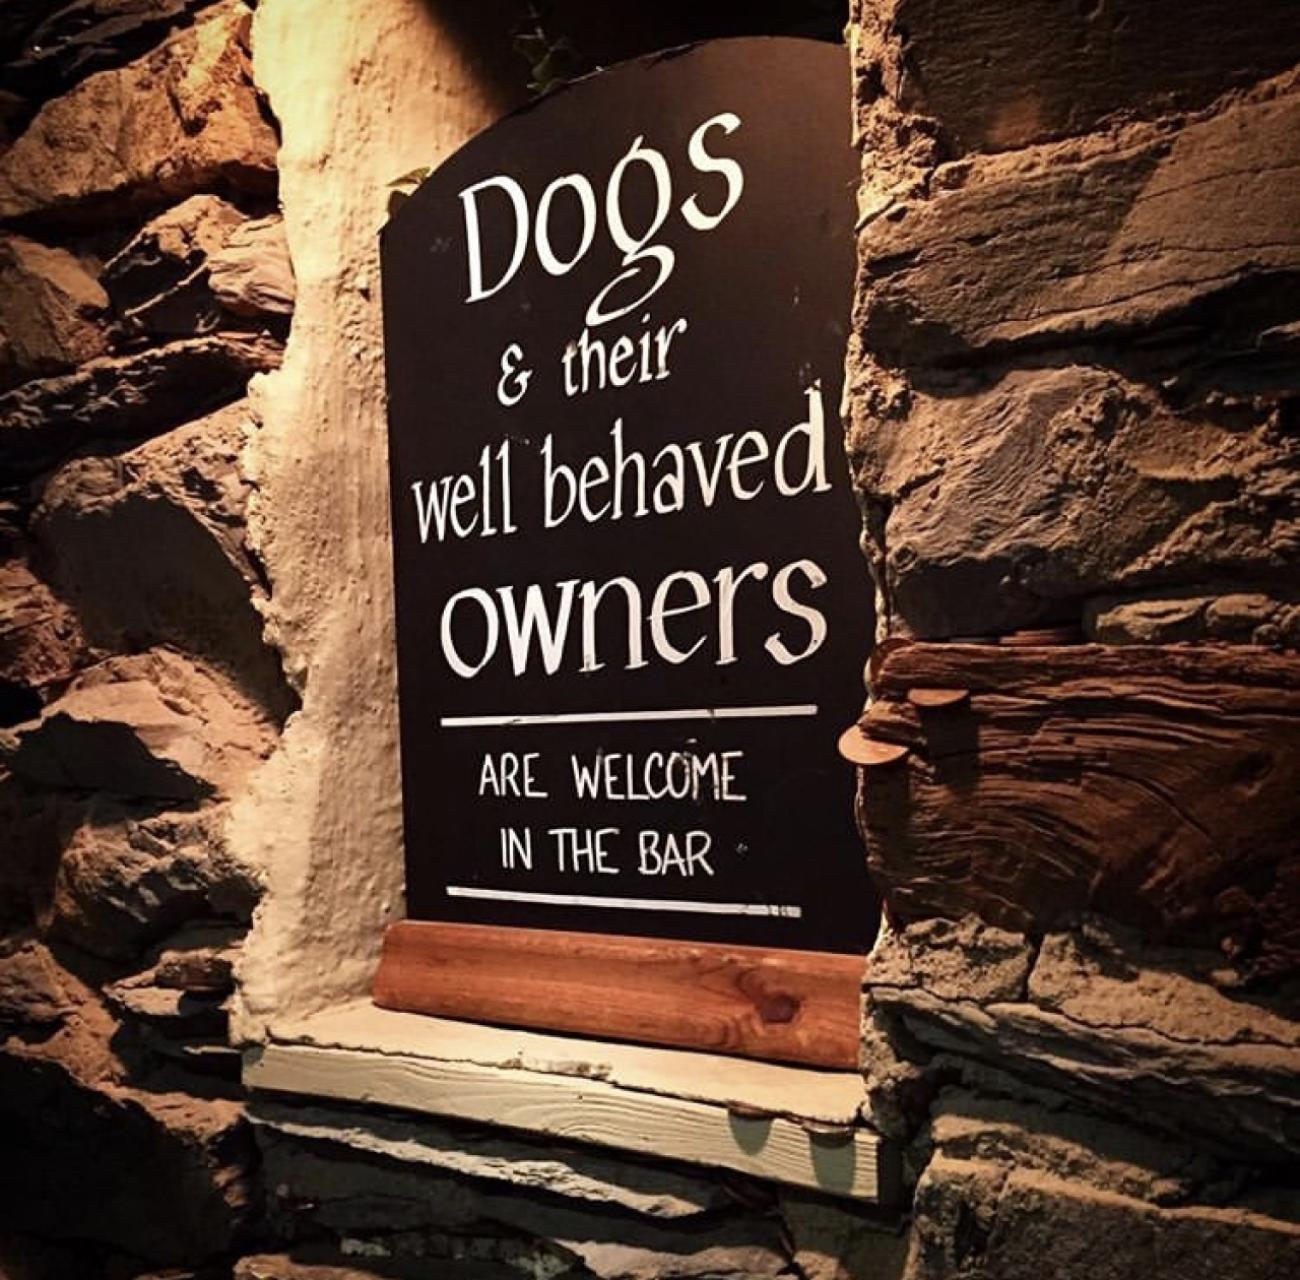 Dogs
& their
well behaved
owners
ARE WELCOME
IN THE BAR